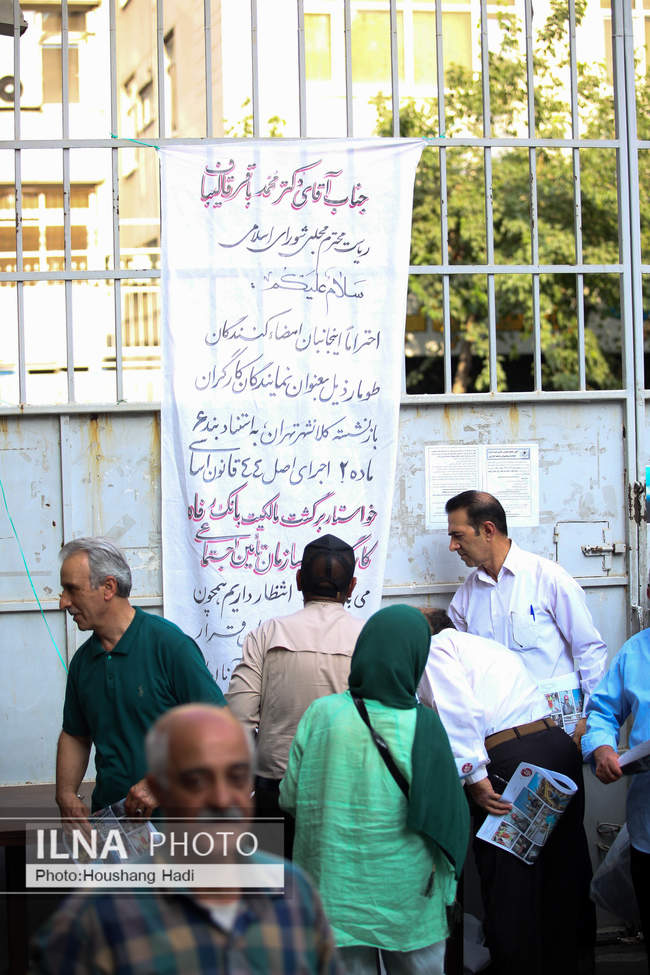 جناب آقای دکتر محمد باقر قالیباف
ریاست محترم مجلس شورای اسلامی
سلام علیکم:
احتراماً اینجانبان امضاء کنندگان
طومار ذیل بعنوان نمایندگان کارگران
بازنشسته کلانشهر تهران، به استناد بند ۶
ماده ۲ اجرای اصل ۴۴ قانون اساسی
خواستار برگشت مالکیت بانک رفاه
سازمان تأمین اجتماعی
انتظار داریم همچون
قرار
ILNA PHOTO
Photo:Houshang Hadi